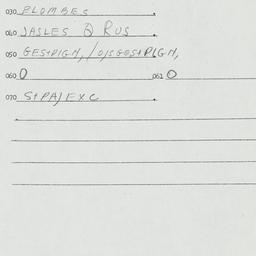 030 PLOMBES
040 JASLES Q RUS
050 GESTPIGM, / O/SGESTPLGM,
060 O 061 O
070 StPA/EXC